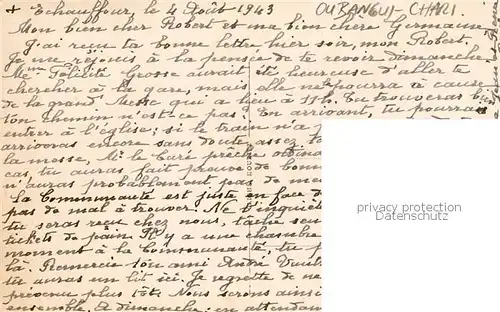 + Echauffour, le 4 Août 1943 OUBANGUI-CHARI.
Mon bien cher Robert et ma bien chère Germaine
J'ai reçu ta bonne lettre hier soir, mon Robert
Je me réjouis à la pensée de te revoir dimanche
Me Félicité Grosse aurait été heureuse d'aller te
chercher à la gare, mais elle ne pourra à cause
de la grand' Messe qui a lieu à 11h. Tu trouveras bien
ton chemin n'est-ce pas. En arrivant, tu pourras
entrer à l'église, si le train n'a
arriveras encore sans doute assez
la messe, Mr le Curé prêche
cas, tu auras fait preuve de bonne
n'auras probablement pas de
La Communauté est juste en face
pas de mal à trouver. Ne t'inquiète
tu seras reçu chez nous, tâche
tickets de pain Il y a une chambre
moment à la Communauté tu
là. Remercie ton ami André
tu auras un lit ici. Je regrette de ne
prévenu plus tôt. Nous serons ainsi
ensemble. A dimanche: en attendant
privacy protection
www.ansichtskartenversand.com